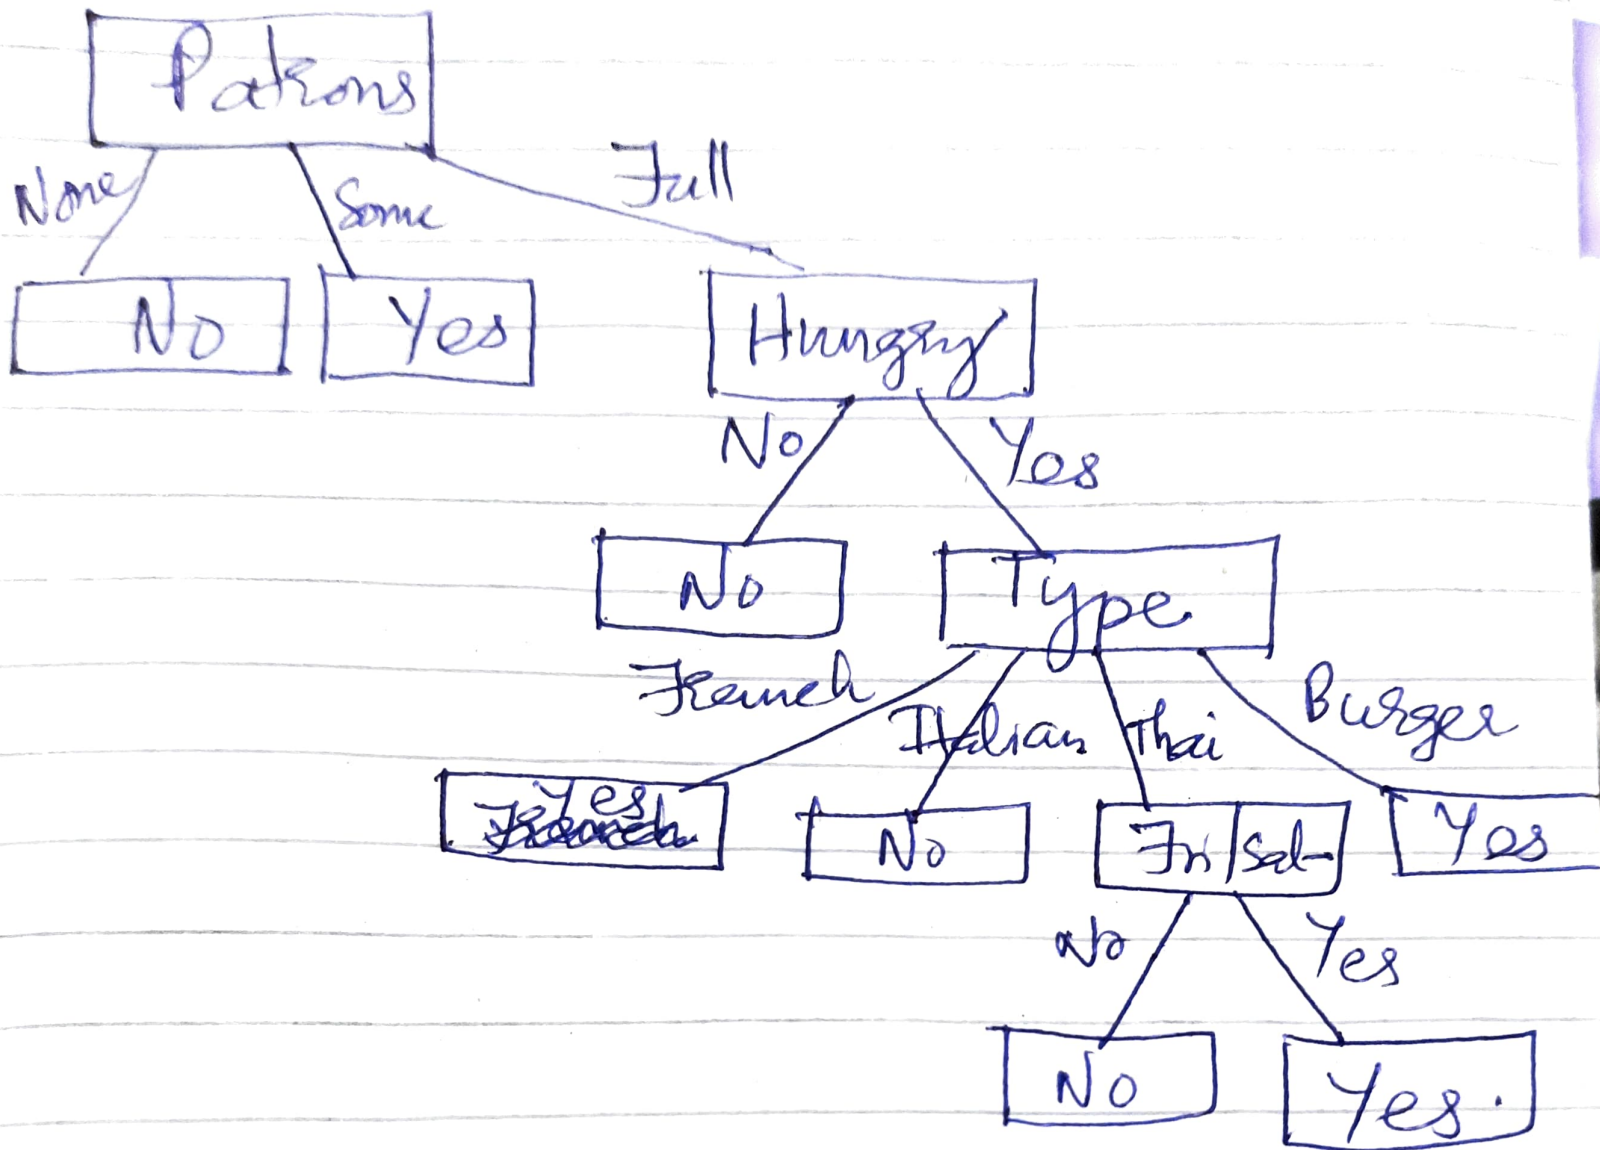 Patrons
None Some Full
No Yes Hungry
No Yes
No Type
French Italian Thai Burger
Yes No Fri/Sat Yes
No Yes
No Yes.